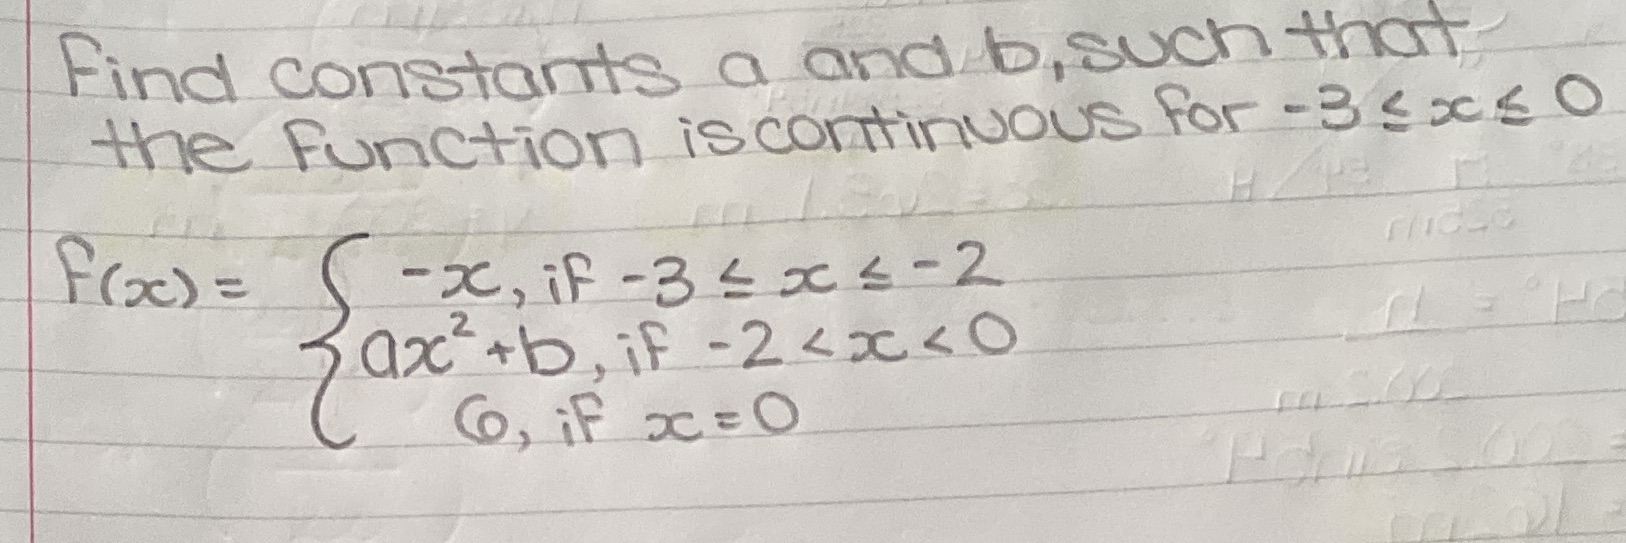 Find constants a and b, such that
the function is continuous for -3 ≤ x ≤ 0
f(x) = { -x, if -3 ≤ x ≤ -2
ax² + b, if -2 < x < 0
6, if x = 0